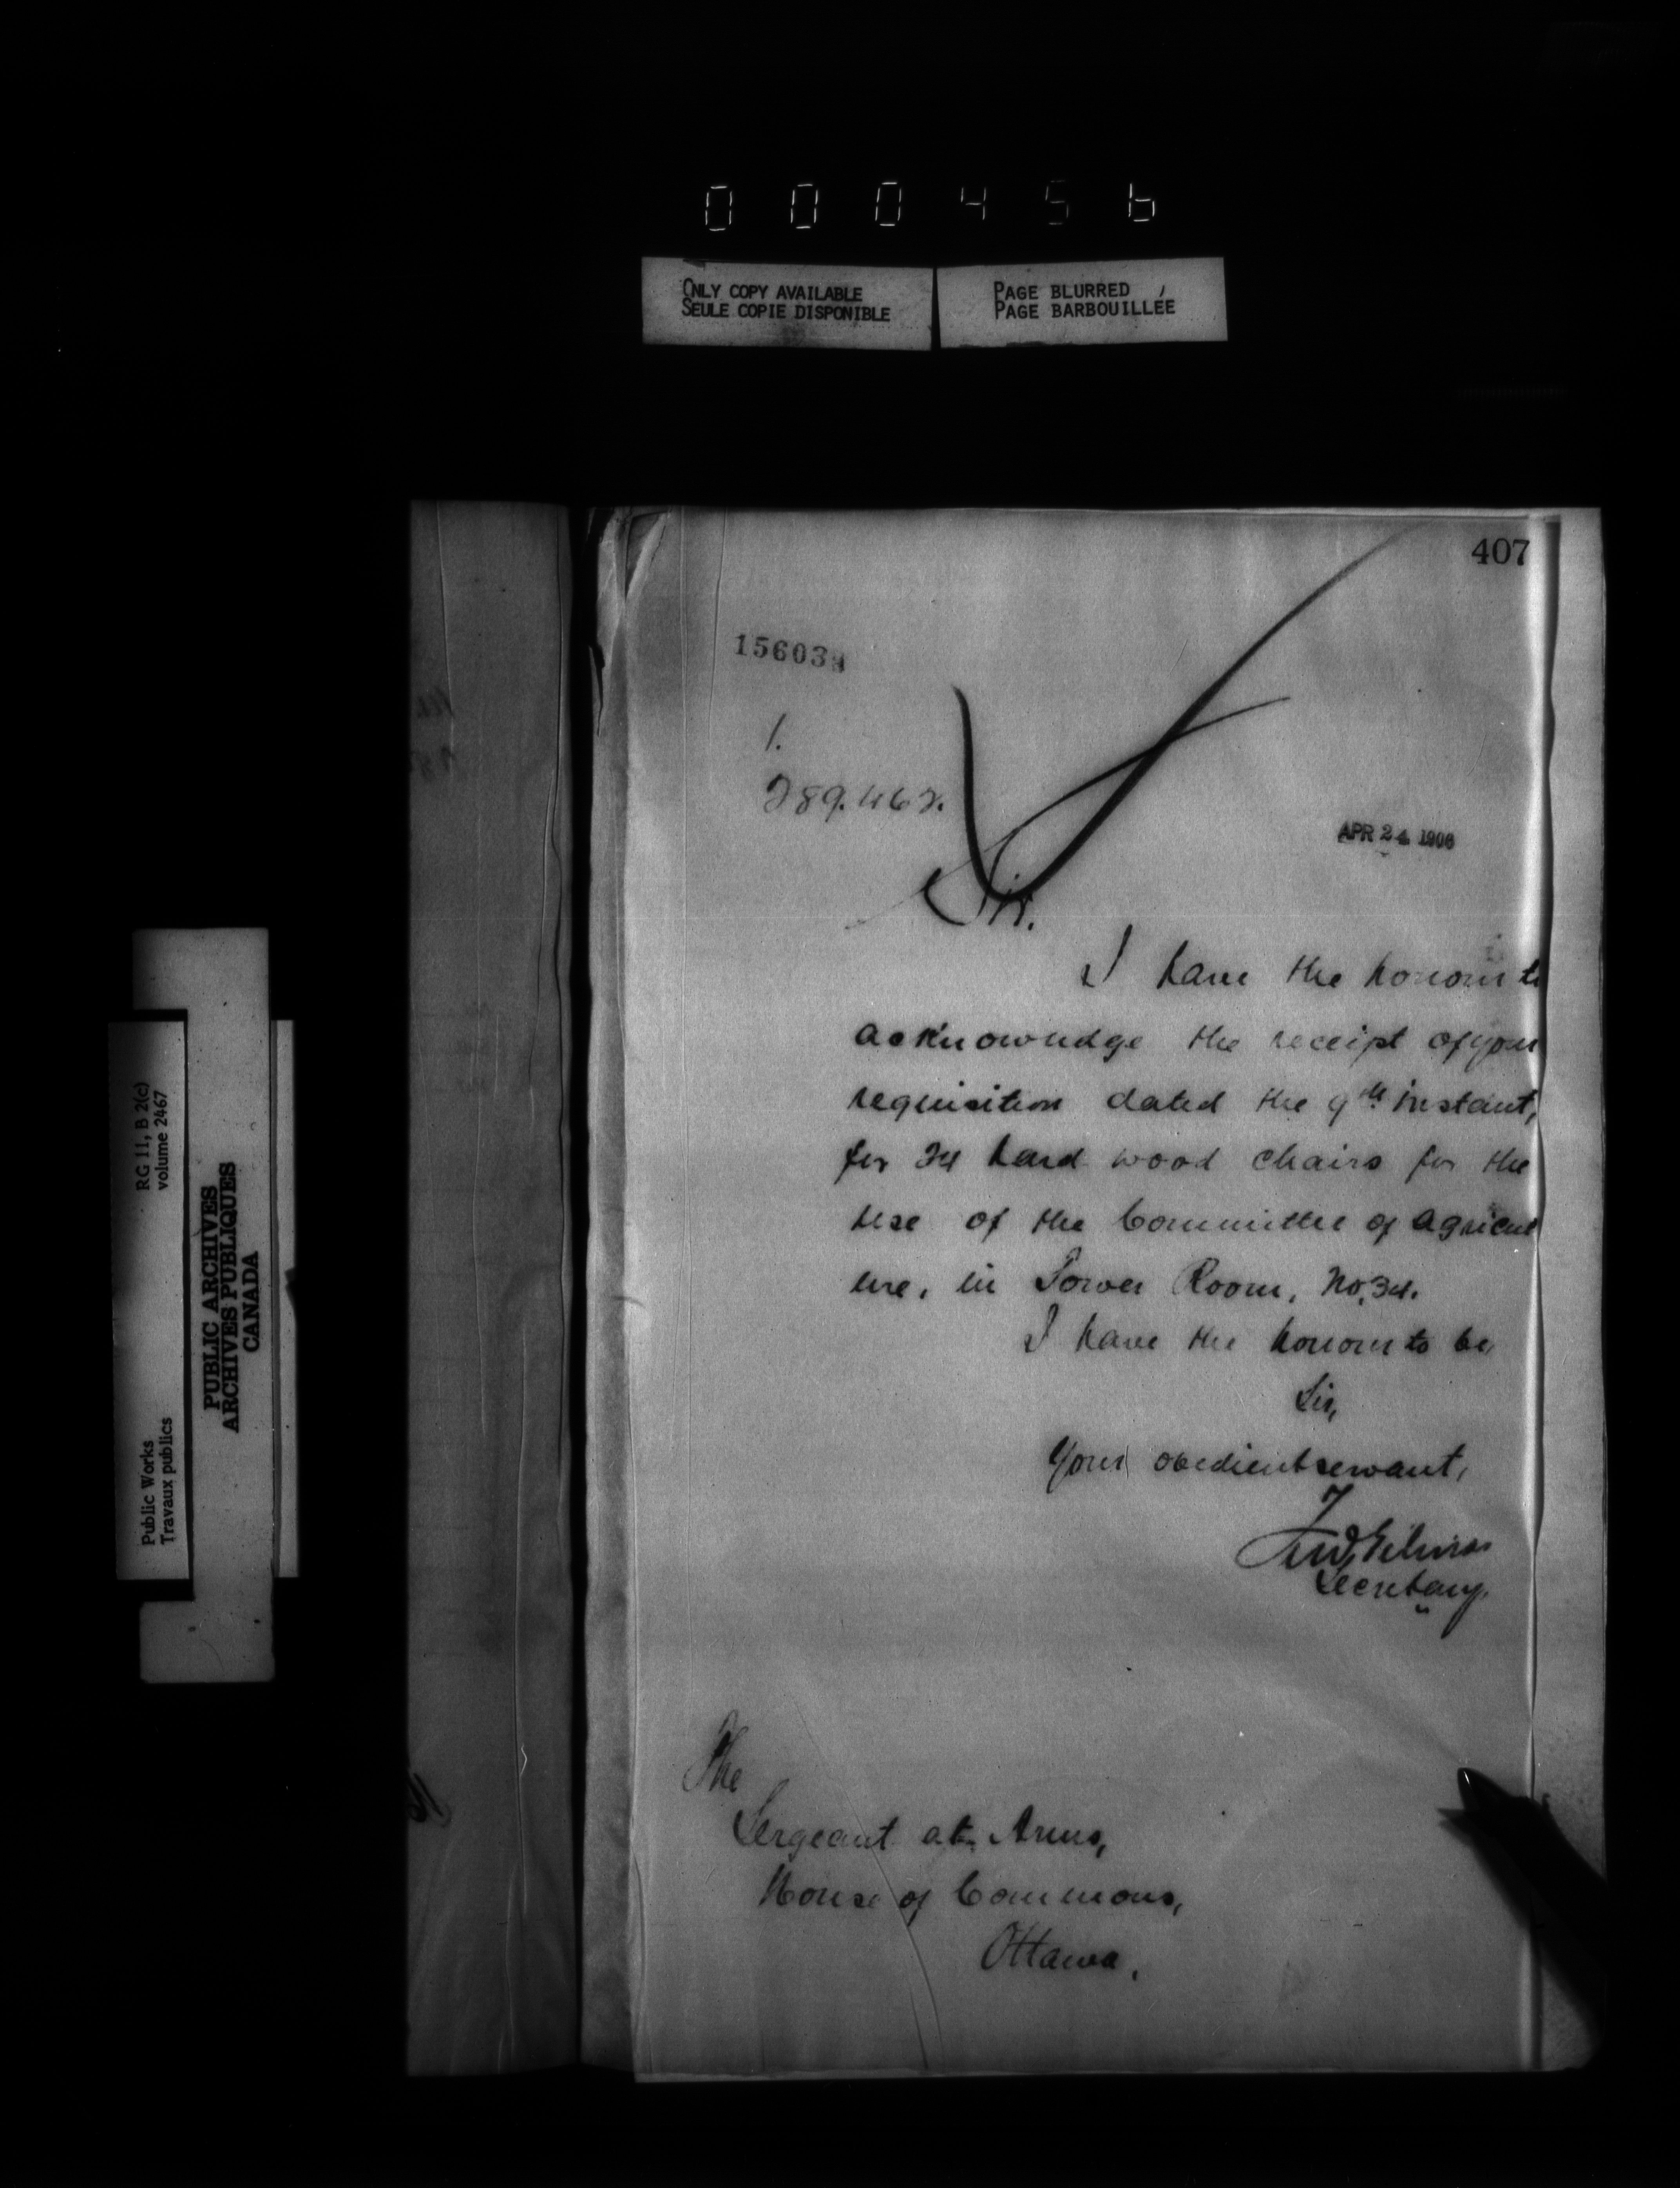 000456
ONLY COPY AVAILABLE
SEULE COPIE DISPONIBLE
PAGE BLURRED
PAGE BARBOUILLÉE
RG 11, B 2(c)
volume 2467
Public Works
Travaux publics
PUBLIC ARCHIVES
ARCHIVES PUBLIQUES
CANADA
407
15603
1.
289.462.
APR 24 1906
Sir.
I have the honour to
acknowledge the receipt of your
requisition dated the 9th instant,
for 24 hard wood chairs for the
use of the Committee of Agricul
ure, in Tower Room, No. 34.
I have the honour to be,
Sir,
Your obedient servant,
Secretary.
The
Sergeant at Arms,
House of Commons,
Ottawa,